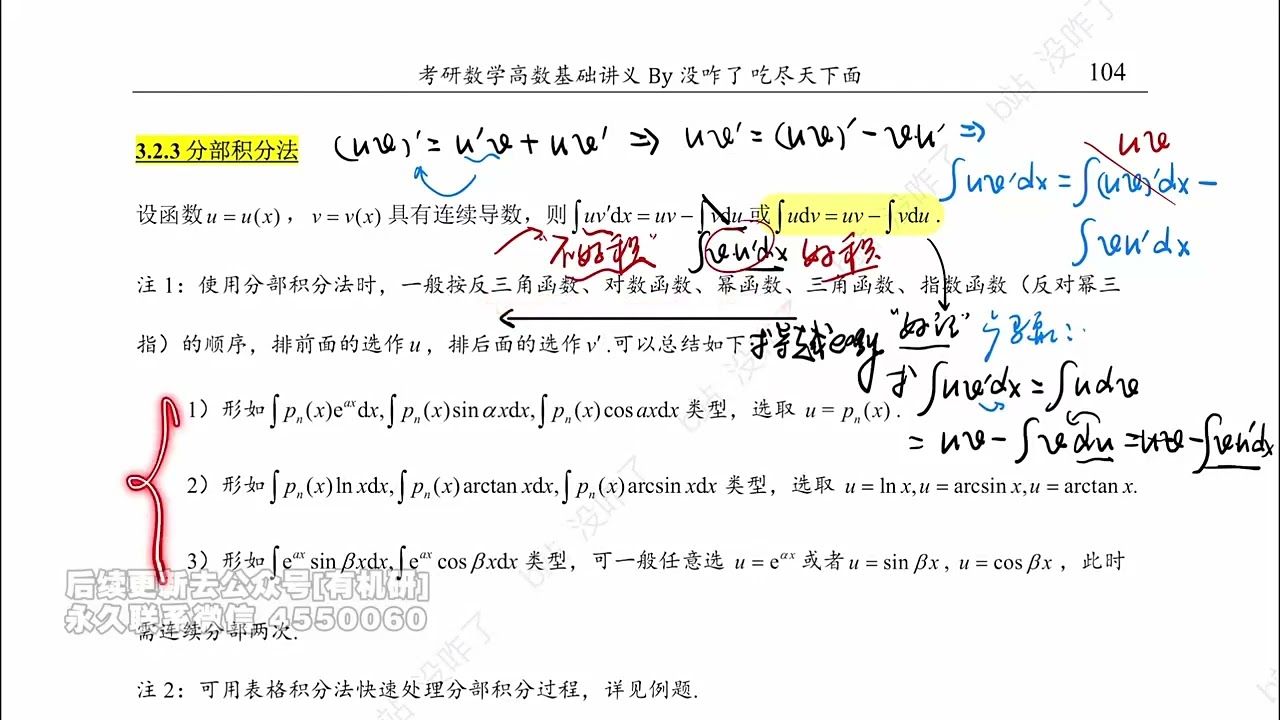 考研数学高数基础讲义 By 没咋了 吃尽天下面
104
3.2.3 分部积分法
(uv)′ = u′v + uv′ ⇒ uv′ = (uv)′ − vu′ ⇒
uv
∫uv′dx = ∫(uv)′dx −
∫vu′dx
设函数 u = u(x)，v = v(x) 具有连续导数，则∫uv′dx = uv − ∫vdu 或∫udv = uv − ∫vdu .
"不好积" ∫vu′dx 好积
注 1：使用分部积分法时，一般按反三角函数、对数函数、幂函数、三角函数、指数函数（反对幂三
指）的顺序，排前面的选作 u，排后面的选作 v′.可以总结如下
求导越easy "好记" 步骤：
求∫uv′dx = ∫udv
= uv − ∫vdu = uv − ∫vu′dx
1）形如∫pₙ(x)eᵃˣdx,∫pₙ(x)sin αxdx,∫pₙ(x)cos axdx 类型，选取 u = pₙ(x) .
2）形如∫pₙ(x)ln xdx,∫pₙ(x)arctan xdx,∫pₙ(x)arcsin xdx 类型，选取 u = ln x,u = arcsin x,u = arctan x.
3）形如∫eᵃˣ sin βxdx,∫eᵃˣ cos βxdx 类型，可一般任意选 u = e^αx 或者 u = sin βx , u = cos βx ，此时
后续更新去公众号[有机研]
永久联系微信 4550060
需连续分部两次.
注 2：可用表格积分法快速处理分部积分过程，详见例题.
b站 没咋了
b站 没咋了
b站 没咋了
b站 没咋了